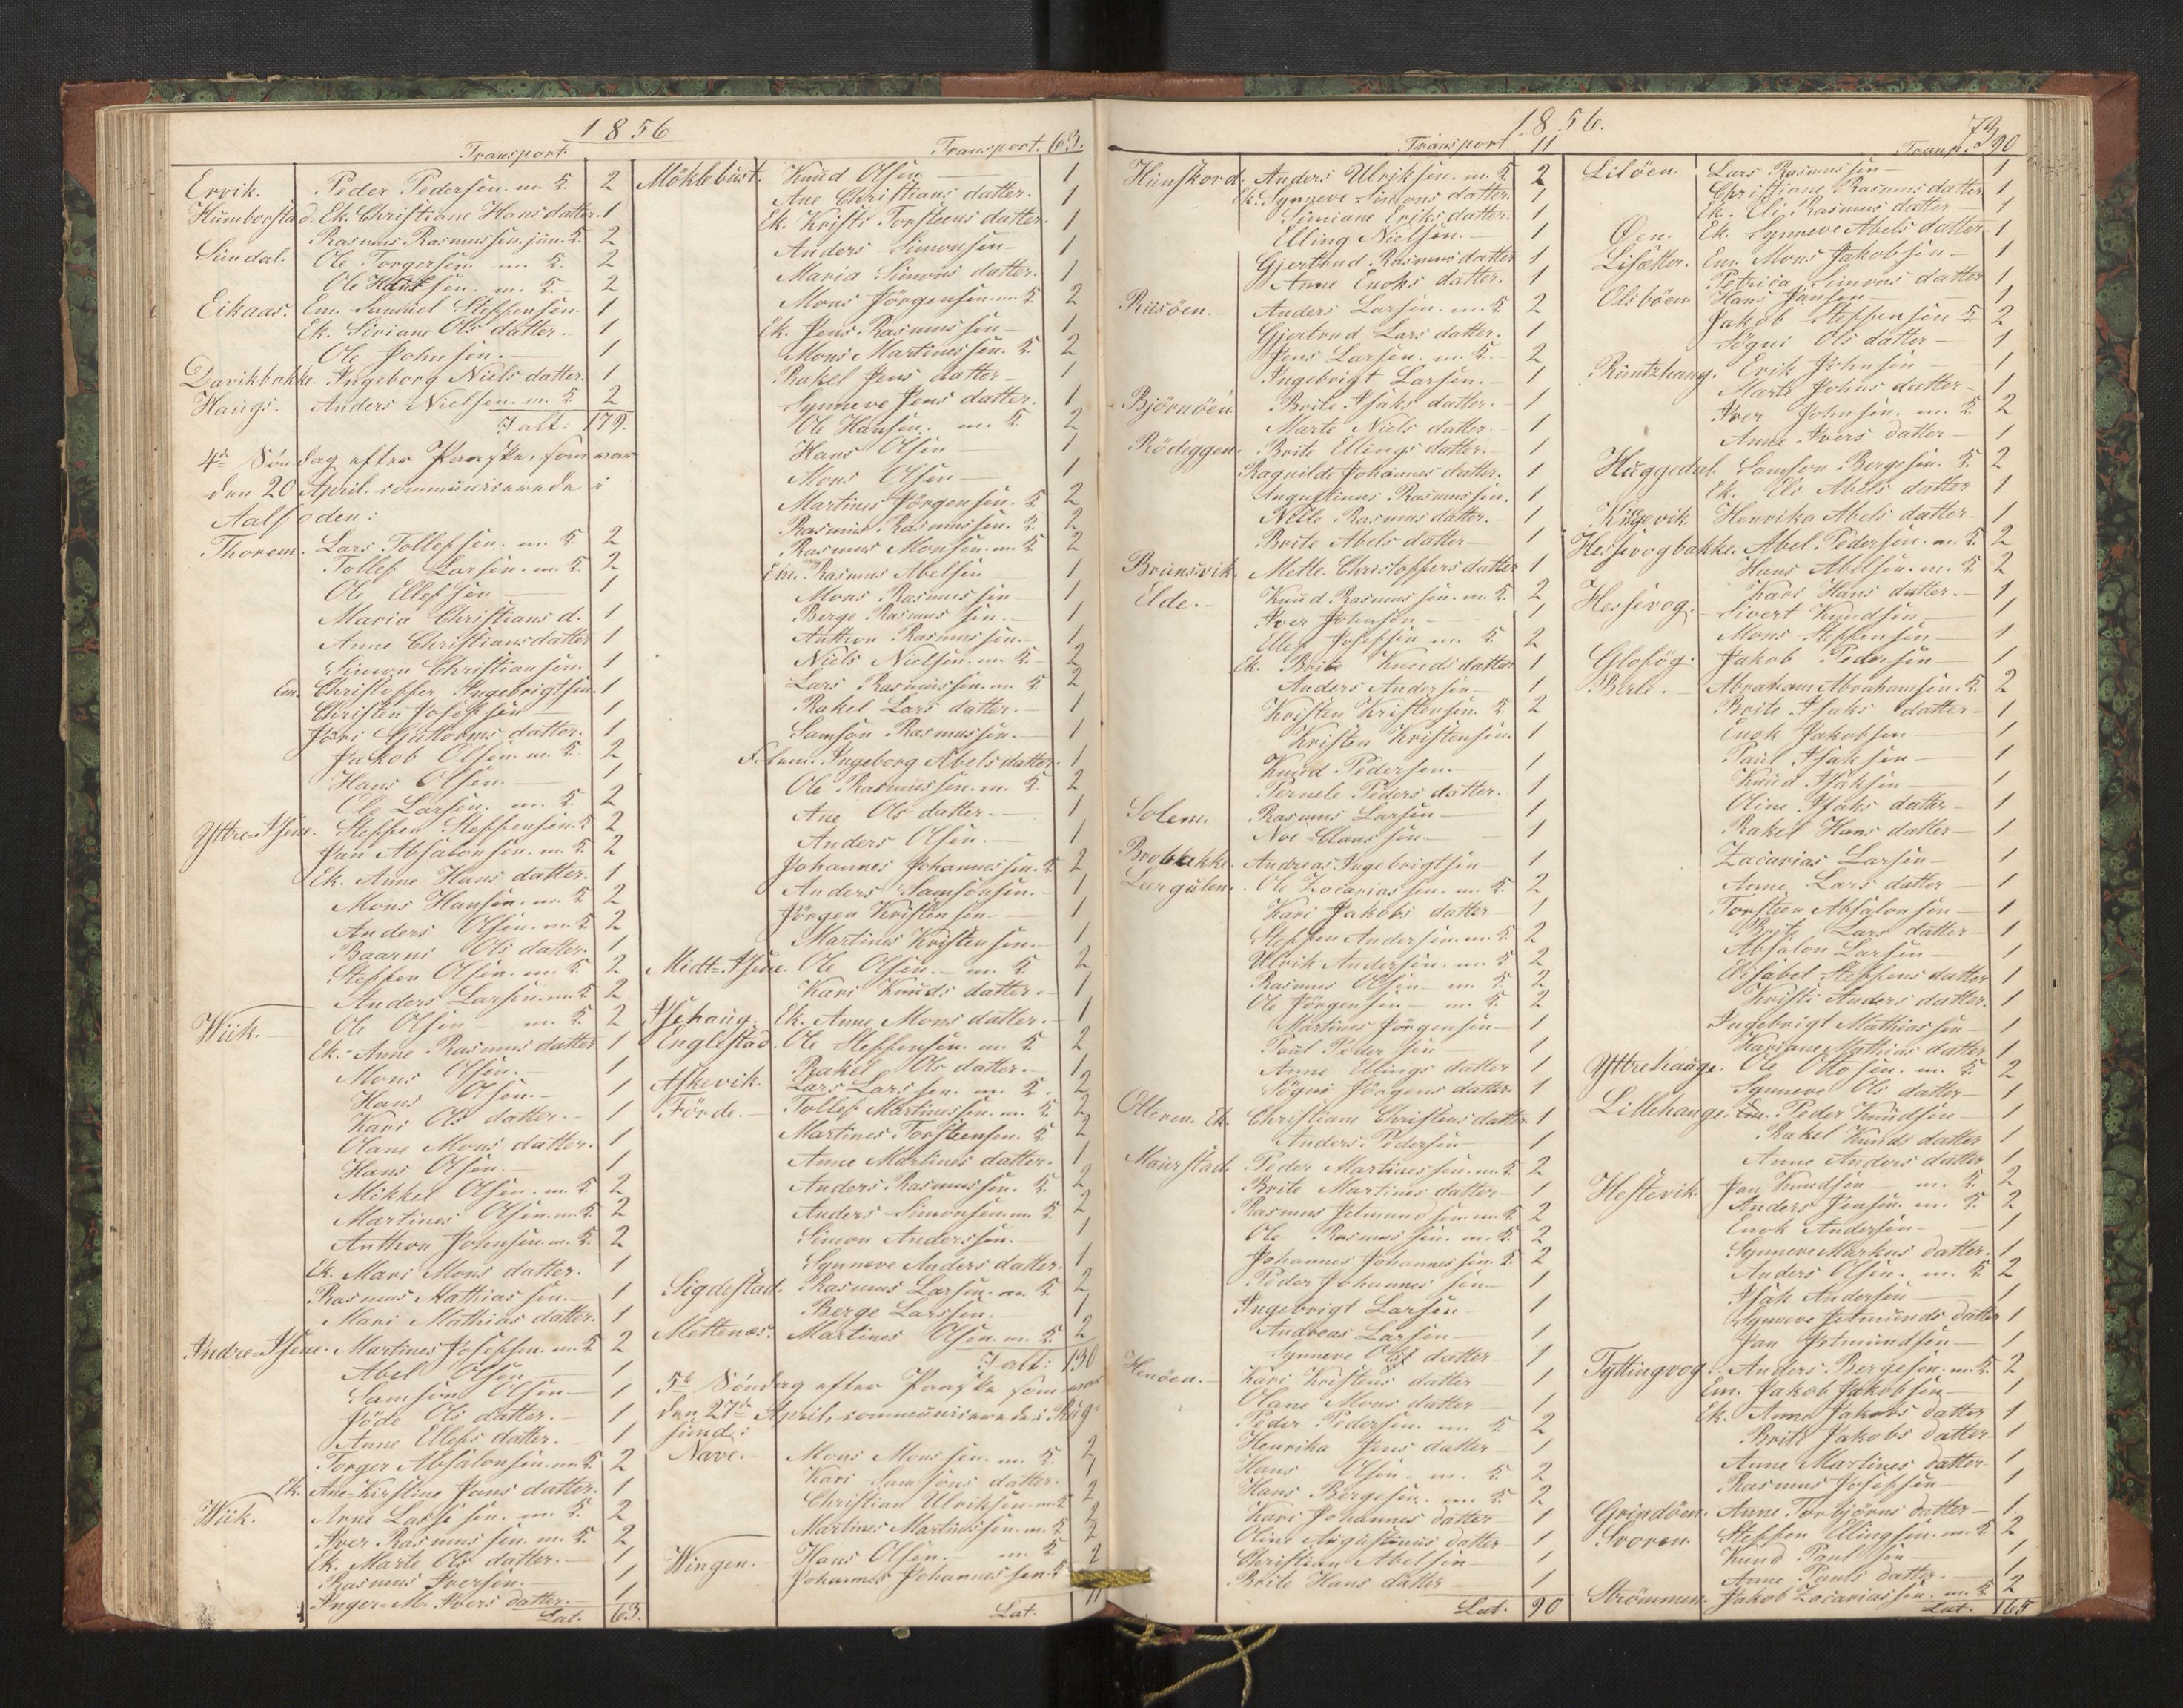 1856
Transport.
Ervik. Peder Pedersen. m. K. 2
Humborstad. Ek. Christiane Hans datter. 1
Rasmus Rasmussen. jün. K. 2
Sündal. Ole Torgersen. m. K. 2
Ole Hansen. m. K. 2
Eikaas. Em. Samüel Steffensen. 1
Ek. Siriane Ols datter. 1
Ole Johnsen. 1
Davikbakke. Ingeborg Niels datter. 1
Haugs. Anders Nielsen. m. K. 2
I alt: 179.
4de Søndag efter Paaske, som var
den 20 April. communicerede i
Aalfoden:
Thorem. Lars Tollefsen. m. K. 2
Tollef Larsen. m. K. 2
Ole Ellefsen 1
Maria Christians d. 1
Anne Christiansdatter 1
Simon Christiansen. 1
Em. Christopher Ingebrigtsen. 1
Christen Josefsen 1
Jöri Guttorms datter. 1
Jakob Olsen. m. K. 2
Hans Olsen. 1
Ole Larsen. m. K. 2
Yttre-Isene. Steffen Steffensen. K 2
Jan Absalonsen. m. K 2
Ek. Anne Hans datter. 1
Mons Hansen. m. K 2
Anders Olsen. m. K 2
Baarni Ols datter. 1
Steffen Olsen. m. K. 2
Anders Larsen. m. K 2
Wiik. Ole Olsen m. K. 2
Ek. Anne Rasmus datter 1
Mons Olsen. 1
Hans Olsen. 1
Kari Ols datter. 1
Olane Mons datter. 1
Hans Olsen. 1
Mikkel Olsen. m. K 2
Martines Olsen. m. K 2
Anthon Johnsen. m. K. 2
Ek. Mari Mons datter. 1
Rasmus Mathias sen. 1
Mari Mathias datter. 1
Indre-Isene. Martines Josefsen. m. K 2
Abel Olsen 1
Samson Olsen 1
Jöde Ols datter. 1
Anne Ellefs datter. 1
Torger Absalonsen. m. K 2
Ek. Ane-Kirstine Jans datter. 1
Wiik. Arne Lassesen. m. K. 2
Iver Rasmussen. m. K. 2
Ek. Marte Ols datter. 1
Rasmus Iversen. 1
Inger-M. Ivers datter. 1
Lat. 63.
Transport. 63.
Möklebust. Knud Olsen 1
Ane Christians datter. 1
Ek. Kristi Torsteens datter. 1
Anders Simonsen 1
Maria Simons datter. 1
Mons Jörgensen. m. K 2
Ek. Jens Rasmussen 1
Mons Martinessen. K. 2
Rakel Jens datter 1
Synneve Jens datter. 1
Ole Hansen. m. K 2
Hans Olsen 1
Mons Olsen 1
Martines Jörgensen. K 2
Rasmus Rasmussen. K. 2
Rasmus Monsen. m. K 2
Em. Rasmus Abelsen 1
Mons Rasmussen 1
Berge Rasmussen. 1
Anthon Rasmussen. 1
Niels Nielsen. m. K. 2
Lars Rasmussen. m. K 2
Rakel Lars datter. 1
Samson Rasmussen. 1
Ingeborg Abels datter. 1
Ole Rasmussen. m. K. 2
Ane Ols datter 1
Anders Olsen. 1
Johannes Johannessen. K 2
Anders Samsonsen. 1
Jörgen Kristensen 1
Martines Kristensen. 1
Midt-Isene. Ole Olsen. m. K. 2
Kari Knuds datter. 1
Isehaug. Ek. Anne Mons datter. 1
Englestad. Ole Steffensen. m. K. 2
Rakel Ols datter. 1
Askevik. Lars Larssen. m. K. 2
Förde. Tollef Martinessen. m. K. 2
Martines Torsteensen. K. 2
Anne Martines datter. 1
Anders Rasmussen. K. 2
Anders Simonsen. m. K. 2
Simon Anderssen. 1
Synneve Anders datter. 1
Sigdestad. Rasmus Larsen. m. K. 2
Berge Larssen. 1
Mettenæs. Martines Olsen. m. K. 2
I alt: 130
5te Søndag efter Paaske som var
den 27de April, communicerede i Rüg-
sund:
Nave. Mons Monssen. m. K. 2
Kari Samsons datter. 1
Christian Ulriksen. m. K 2
Martines Martinessen. m. K 2
Wingen. Hans Olsen. m. K. 2
Johannes Johannessen. K 2
Lat. 11
1856.
73
Transport 11
Hünskord. Anders Ulriksen. m. K. 2
Ek. Synneve Simons datter. 1
Simiane Eriks datter. 1
Elling Nielsen. 1
Gjertrud Rasmus datter 1
Anne Enoks datter. 1
Riisöen. Anders Larsen. m. K. 2
Gjertrud Lars datter. 1
Jens Larsen. m. K. 2
Ingebrigt Larsen. 1
Björnöen. Brite Isaks datter. 1
Marte Niels datter. 1
Rödeggen. Brite Ellings datter. 1
Ragnilde Johannes datter. 1
Augustinus Rasmussen. 1
Nille Rasmus datter. 1
Brite Abels datter 1
Brunsvik. Mette Christoffers datter 1
Elde. Knud Rasmussen. m. K. 2
Iver Johnsen 1
Ellef Josefsen m. K. 2
Ek. Brite Knuds datter 1
Anders Andersen 1
Kristen Kristensen. K. 2
Kristen Kristensen. 1
Knud Pedersen. 1
Pernele Peders datter. 1
Solem. Rasmus Larsen 1
Noe Claussen 1
Brobakke. Andreas Ingebrigtsen 1
Lurgulen. Ole Zacariassen. m. K. 2
Kari Jakobs datter 1
Steffen Andersen. m. K 2
Ulrik Andersen. m. K 2
Rasmus Olsen m. K 2
Ole Jörgensen m. K. 2
Martines Jörgensen 1
Paul Pedersen 1
Anne Ellings datter 1
Sögni Jörgens datter. 1
Otteren. Ek. Christiane Christens datter. 1
Anders Pedersen 1
Maurstad. Peder Martinessen. m. K 2
Brite Martines datter 1
Rasmus Jetmundsen. m. K 2
Ole Rasmussen. m. K. 2
Johannes Johannessen. K 2
Peder Johannessen 1
Ingebrigt Larsen 1
Andreas Larsen 1
Synneve Ols datter 1
Henöen. Kari Kristens datter 1
Olane Mons datter 1
Peder Pedersen. m. K 2
Henrika Jens datter 1
Hans Olsen. m. K. 2
Hans Bergesen. m. K. 2
Kari Johannes datter 1
Oline Augustinus datter 1
Christian Abelsen 1
Brite Hans datter 1
Lat. 90
Transp. 90
Lilöen. Lars Rasmussen 1
Christiane Rasmus datter 1
Ek. Eli Rasmus datter 1
Øen. Ek. Synneve Abels datter 1
Lisætter. Em. Mons Jakobsen 1
Petrica Simons datter 1
Olsböen Hans Jansen 1
Jakob Steffensen K. 2
Sögni Ols datter 1
Rüntzhaug. Erik Johnsen 1
Marte Johns datter 1
Iver Johnsen. m. K 2
Anne Ivers datter 1
Huggedal. Samson Bergesen. K. 2
Ek. Eli Abels datter 1
Henrika Abels datter 1
Hessevogbakke. Abel Pedersen. m. K. 2
Hans Abelsen. m. K. 2
Kari Hans datter. 1
Hessevog. Sivert Knudsen 1
Mons Steffensen 1
Glofög. Jakob Pedersen 1
Berle. Abraham Abrahamsen. K. 2
Brite Isaks datter 1
Enok Jakobsen 1
Paul Isaksen 1
Knud Isaksen 1
Oline Isaks datter 1
Rakel Hans datter 1
Zacarias Larsen 1
Anne Lars datter 1
Torsteen Absalonsen 1
Brite Lars datter 1
Absalon Larsen 1
Elisabet Steffens datter 1
Kristi Anders datter. 1
Ingebrigt Mathiassen 1
Kariane Mathias datter 1
Yttrehauge. Ole Ottosen. m. K. 2
Synneve Ols datter 1
Lillehauge. Em. Peder Knudsen 1
Rakel Knuds datter 1
Anne Anders datter 1
Hestevik. Jan Knudsen m. K. 2
Anders Jensen. m. K. 2
Enok Andersen 1
Synneve Markus datter. 1
Anders Olsen. m. K 2
Isak Andersen 1
Synneve Jetmunds datter 1
Jan Jetmundsen 1
Tyttingvog. Anders Bergesen. m. K 2
Em. Jakob Jakobsen 1
Ek. Anne Jakobs datter 1
Brite Jakobs datter 1
Anne Martines datter 1
Rasmus Josefsen 1
Grindöen. Anne Torbjörns datter 1
Svoren. Steffen Ellingsen. m. K 2
Knud Paulsen 1
Anne Pauls datter. 1
Strömmen. Jakob Zacariassen. m. K 2
Lat. 165